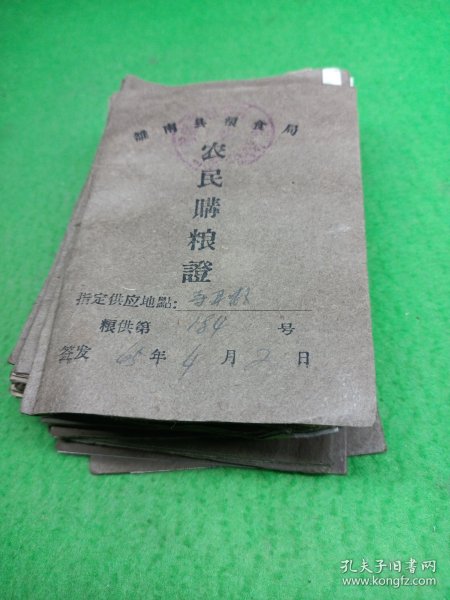 雒南县粮食局
农民購粮證
指定供应地點:
粮供第 184 号
签发 65年4月2日
孔夫子旧书网
www.kongfz.com